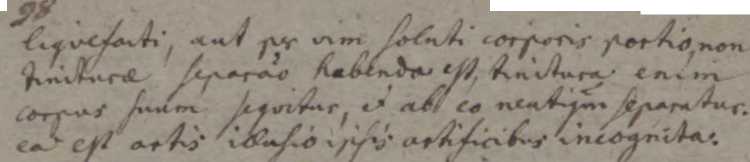 98
liquefacti, aut per vim soluti corporis portio, non
tincturæ separão habenda est, tinctura enim
corpus suum sequitur, & ab eo neutiqm̃ separatur.
ea est artis illusio ipsis artificibus incognita.